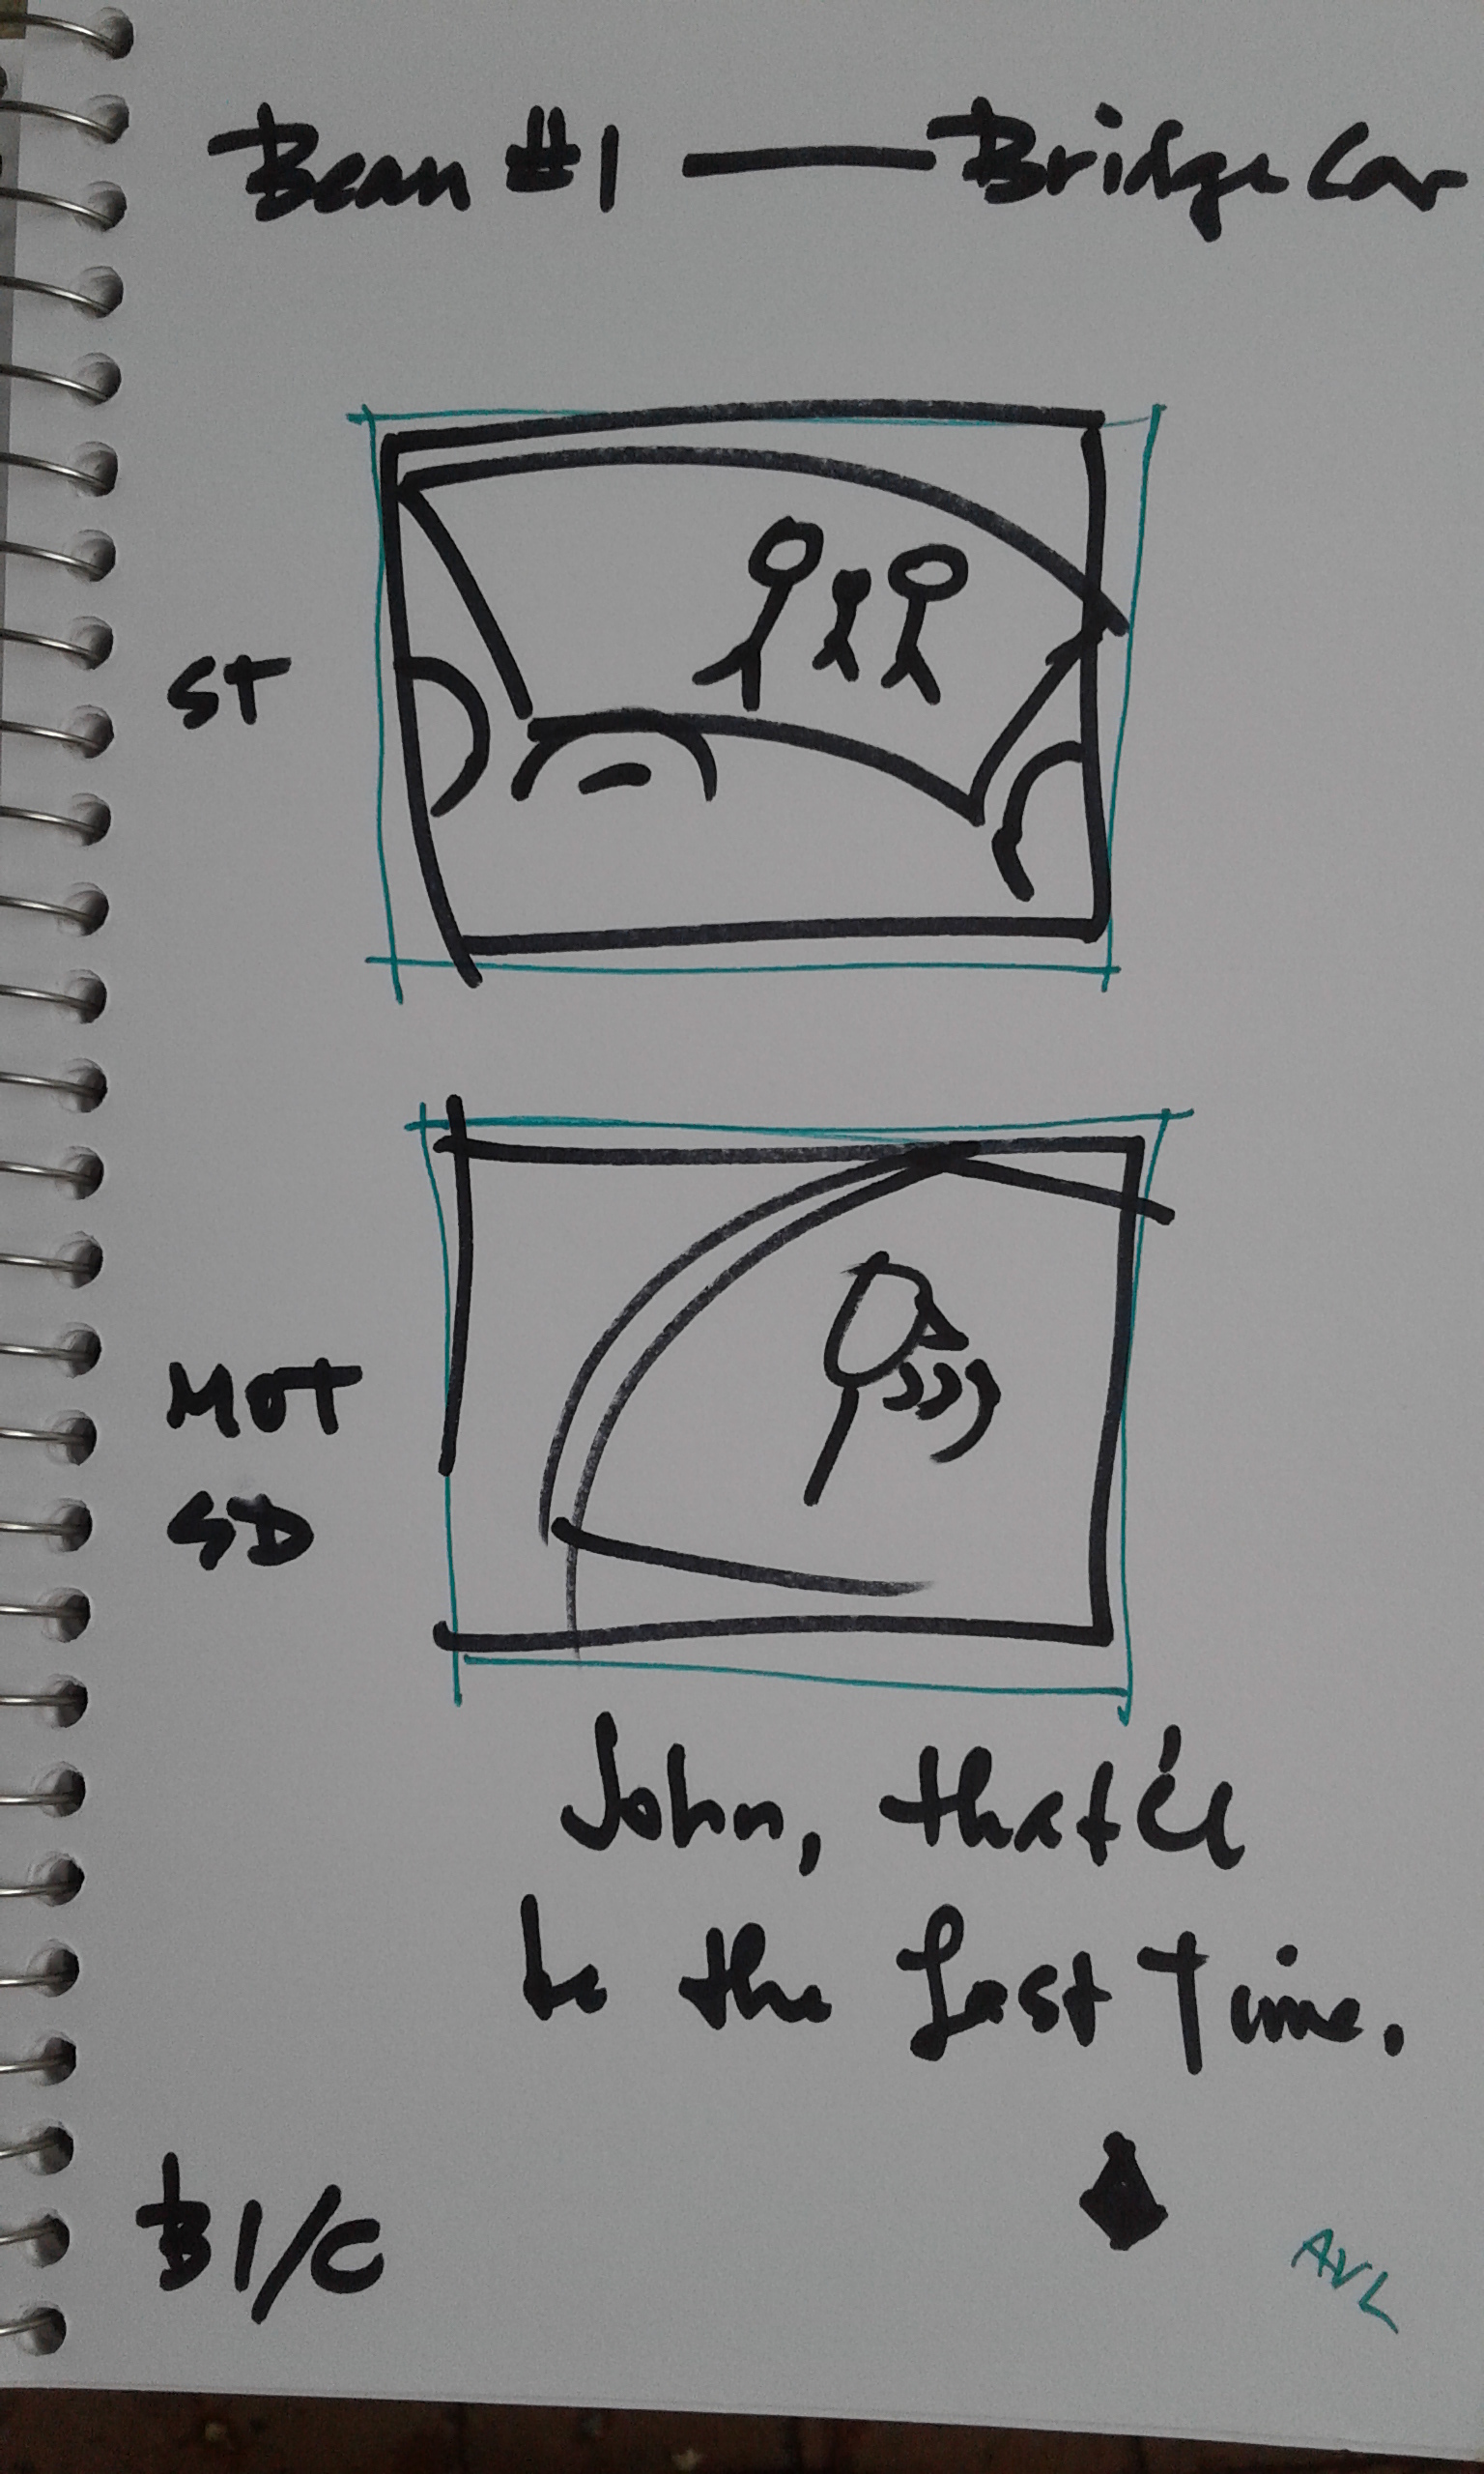 Bean #1 — Bridge Car
ST
MOT
SD
John, that'll
be the last Time.
B1/C
AVL